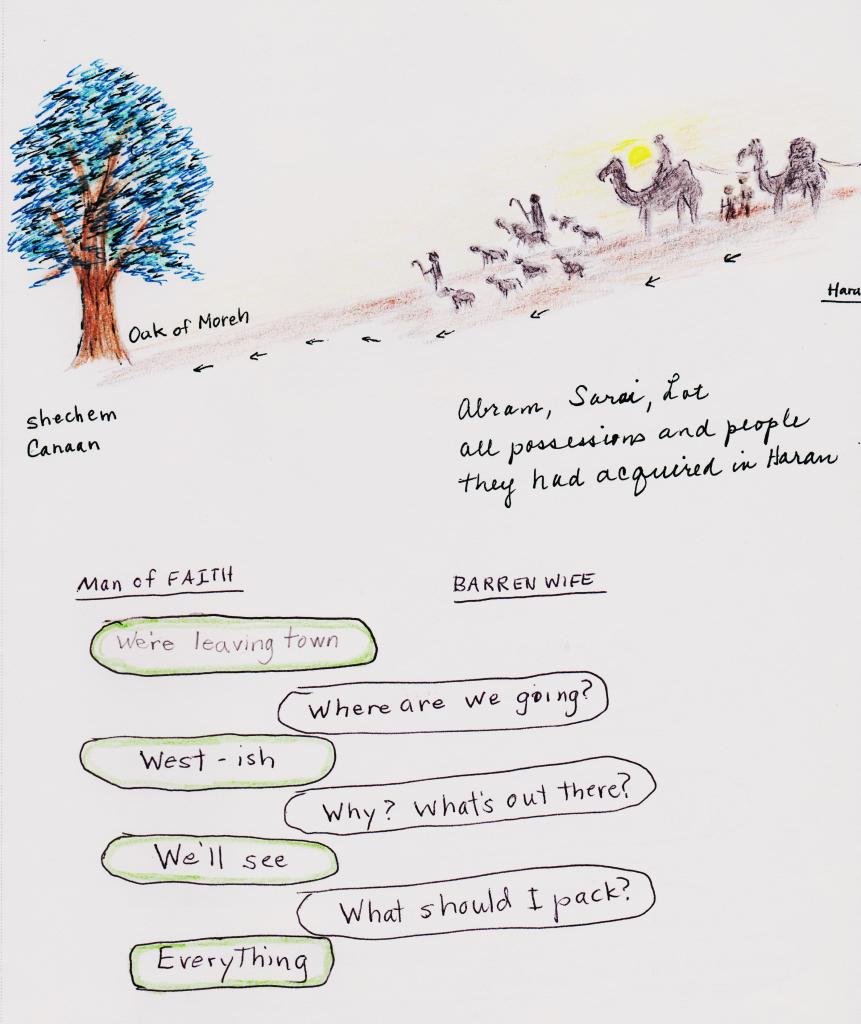 Oak of Moreh
Hara
shechem
Canaan
Abram, Sarai, Lot
all possessions and people
they had acquired in Haran
Man of FAITH
BARREN WIFE
We're leaving town
Where are we going?
West-ish
Why? What's out there?
We'll see
What should I pack?
Everything